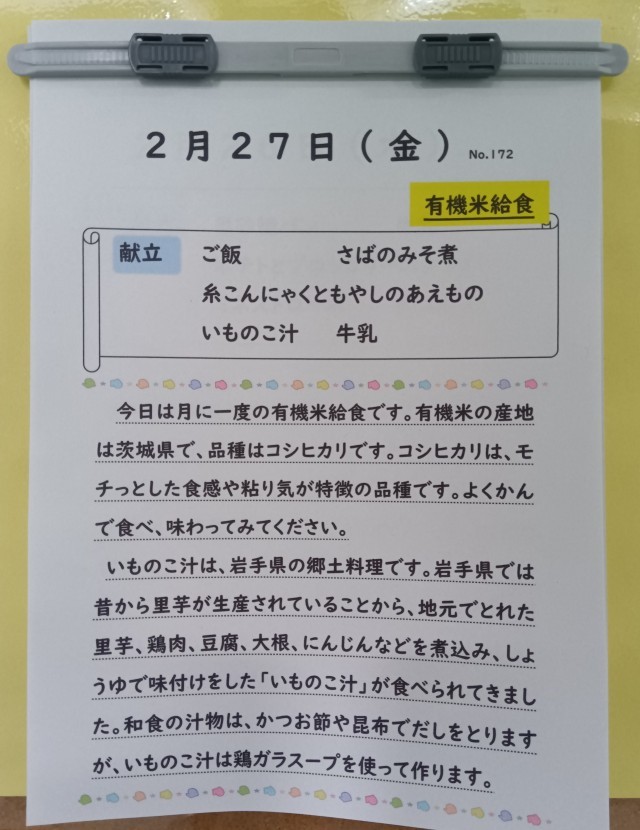 2月27日(金) No.172
有機米給食
献立 ご飯 さばのみそ煮
糸こんにゃくともやしのあえもの
いものこ汁 牛乳
今日は月に一度の有機米給食です。有機米の産地
は茨城県で、品種はコシヒカリです。コシヒカリは、モ
チっとした食感や粘り気が特徴の品種です。よくかん
で食べ、味わってみてください。
いものこ汁は、岩手県の郷土料理です。岩手県では
昔から里芋が生産されていることから、地元でとれた
里芋、鶏肉、豆腐、大根、にんじんなどを煮込み、しょ
うゆで味付けをした「いものこ汁」が食べられてきまし
た。和食の汁物は、かつお節や昆布でだしをとります
が、いものこ汁は鶏ガラスープを使って作ります。